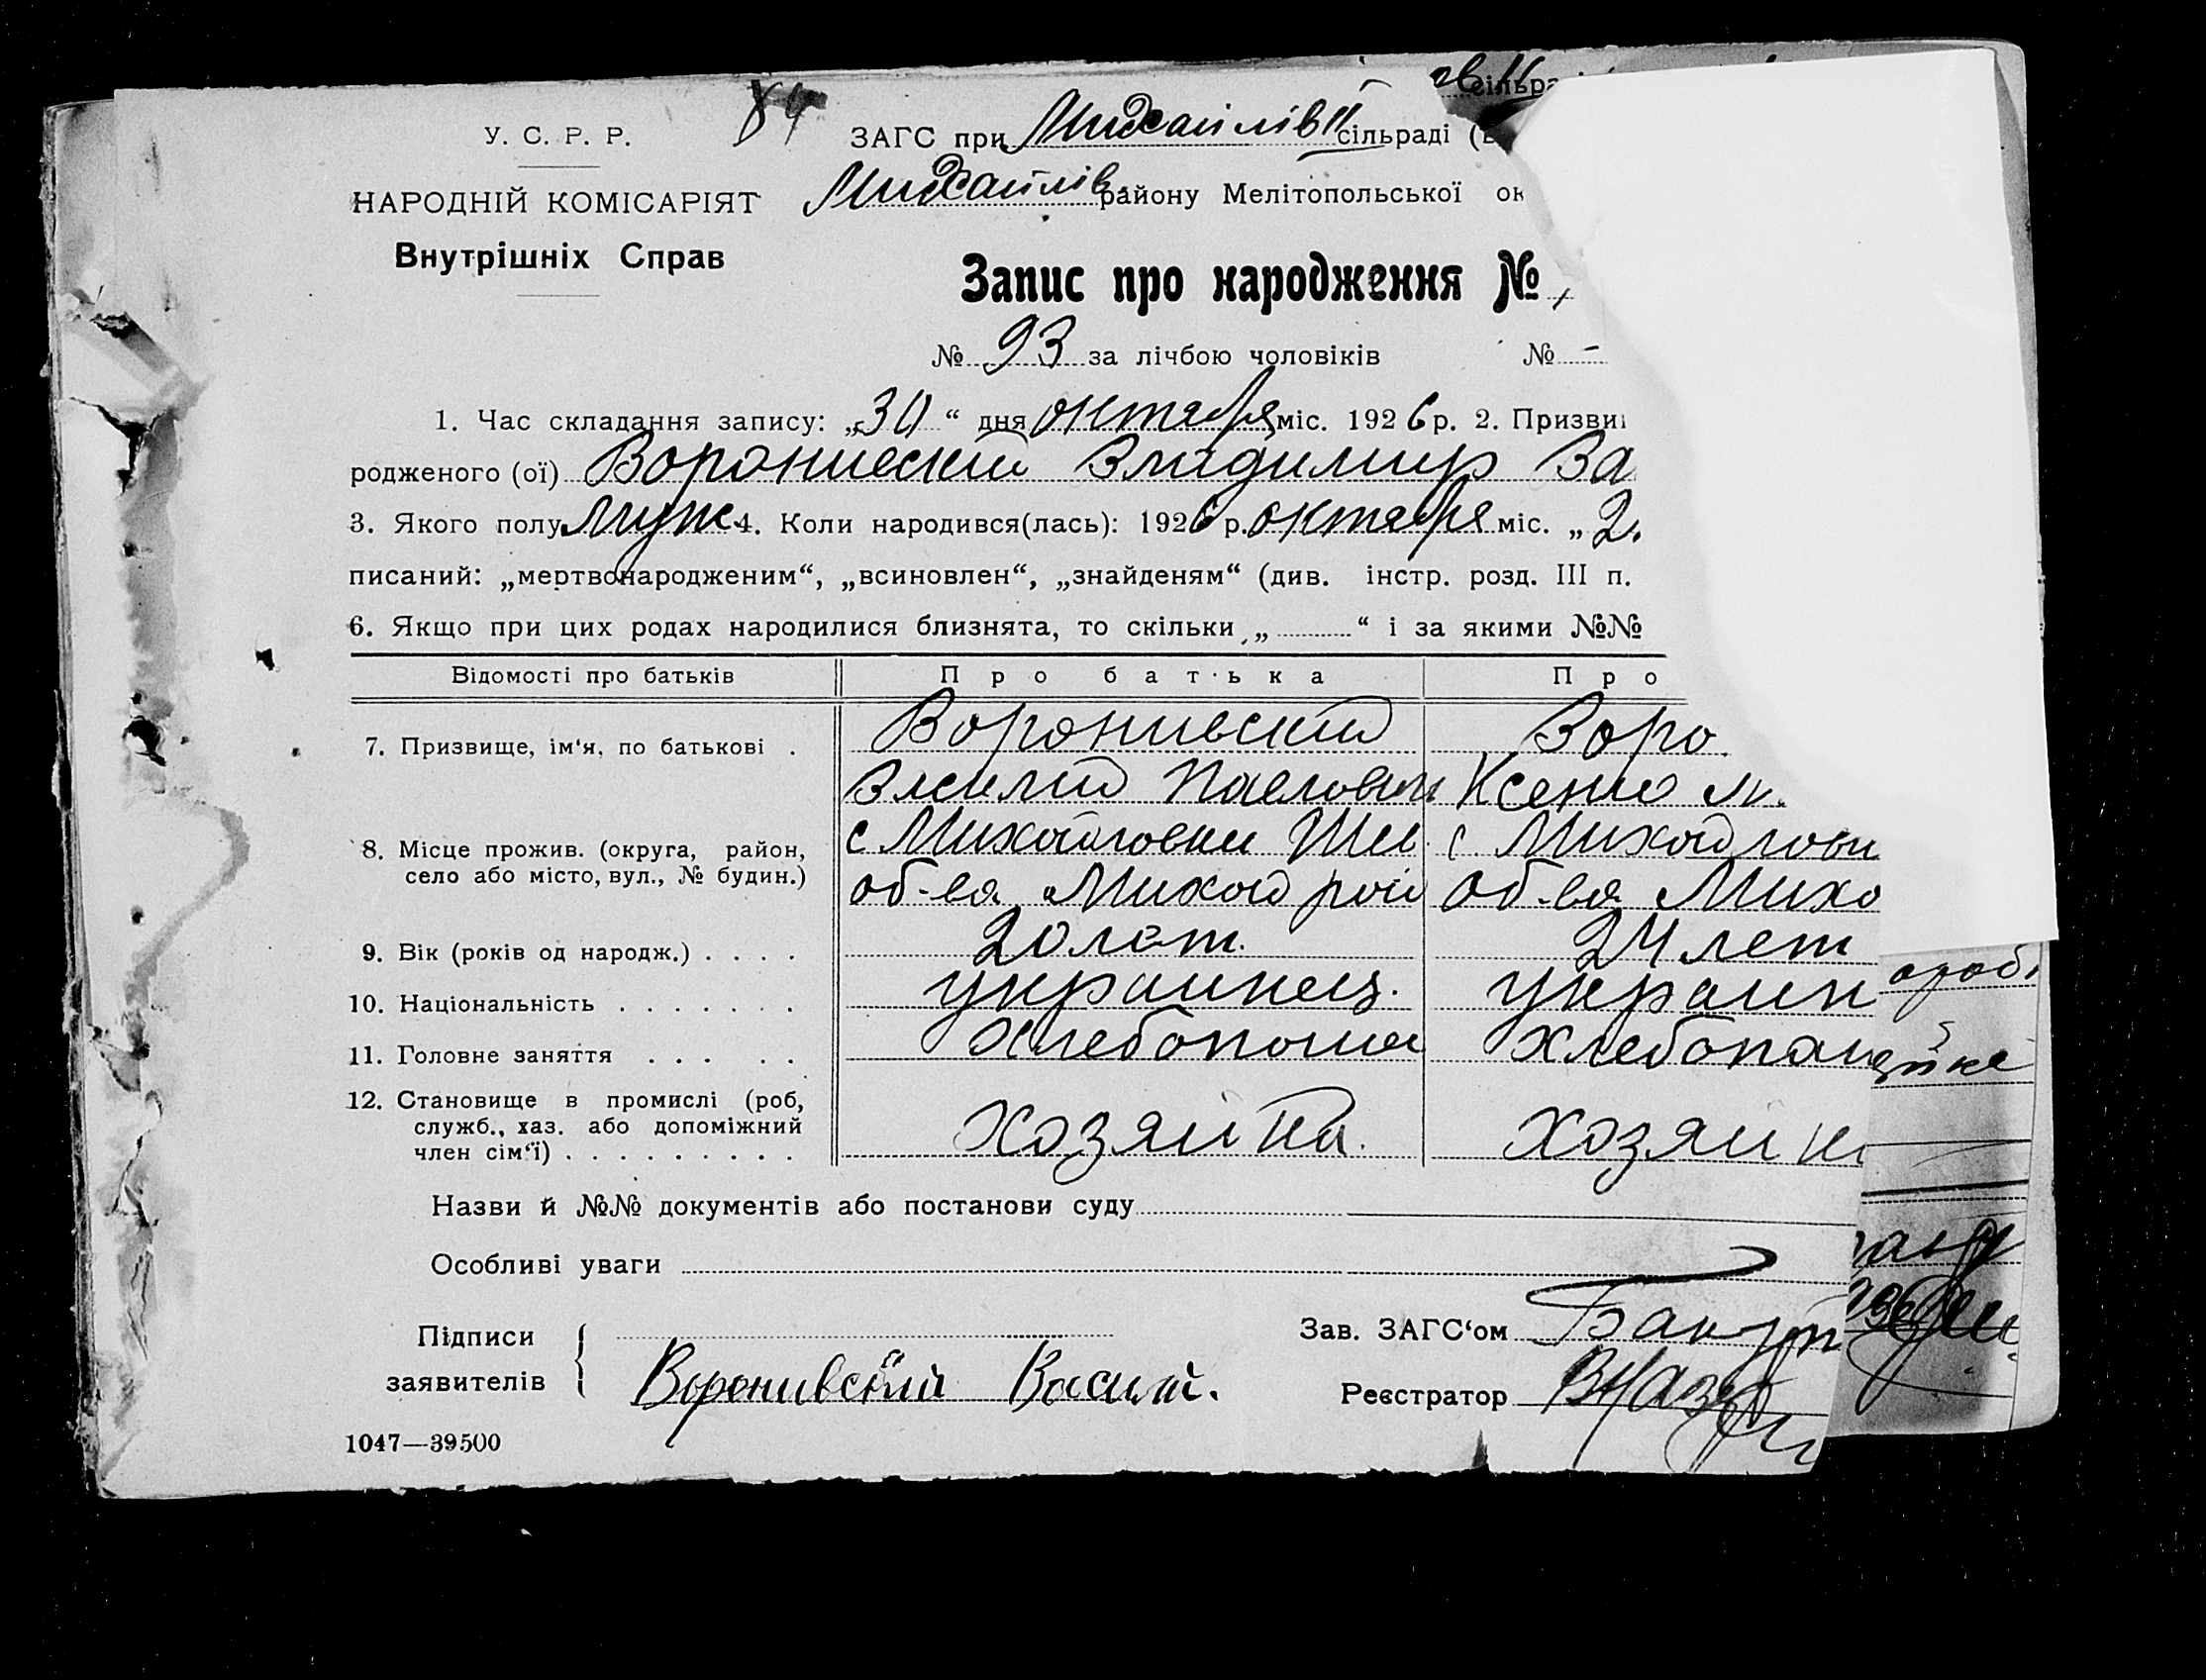 84
У. С. Р. Р.
ЗАГС при Михайлів II сільраді
НАРОДНІЙ КОМІСАРІЯТ
Михайлів. району Мелітопольської ок
Внутрішніх Справ
Запис про народження №
№ 93 за лічбою чоловіків № -
1. Час складання запису: „30“ дня октября міс. 1926 р. 2. Призви
родженого (ої) Воронивский Владимир Ва
3. Якого полу муж. 4. Коли народився(лась): 1926 р. октября міс. „2
писаний: „мертвонародженим“, „всиновлен“, „знайденям“ (див. інстр. розд. III п.
6. Якщо при цих родах народилися близнята, то скільки „ “ і за якими №№
Відомості про батьків Про батька Про
7. Призвище, ім‘я, по батькові . Воронивский Воро
Василий Павлович Ксению
8. Місце прожив. (округа, район, с Михайловки с Михайловк
село або місто, вул., № будин.) об-ва Михай рай об-ва Михо
9. Вік (років од народж.) . . . . 20 лет. 24 лет
10. Національність . . . . . . . украинец. украин
11. Головне заняття . . . . . Хлебопаше Хлебопаш
12. Становище в промислі (роб,
служб., хаз. або допоміжний хозяйка. хозяйк
член сім‘ї) . . . . . . . . .
Назви й №№ документів або постанови суду
Особливі уваги
Підписи
заявителів Воронивский Васил.
Зав. ЗАГС‘ом
Реєстратор
1047—39500